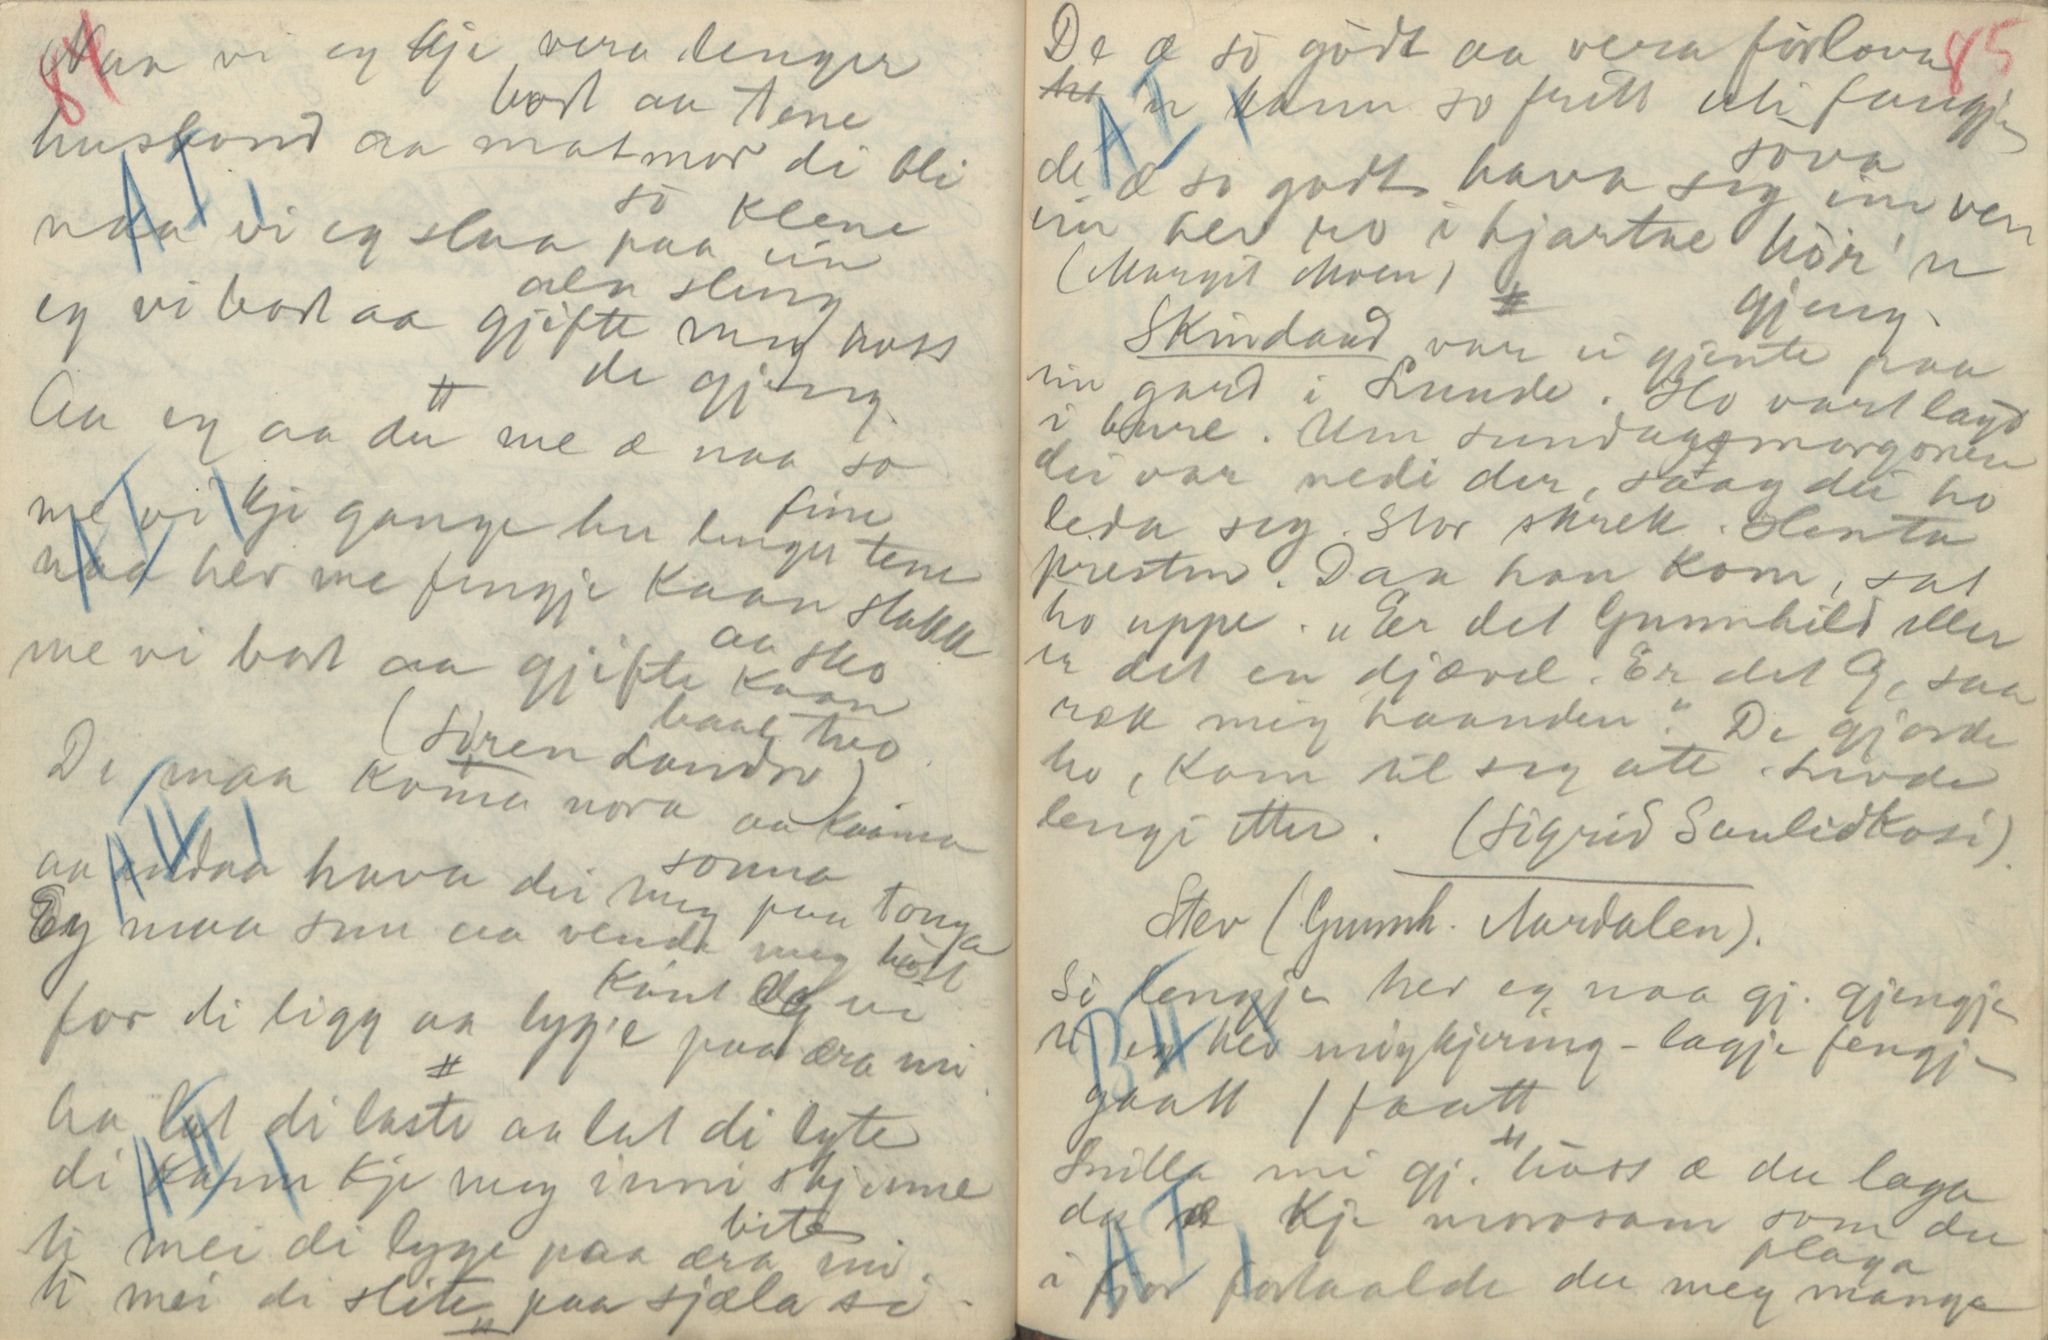 84
Naa vi eg kje vera lenger
bort aa tene
husbond aa matmor di bli
so klene
naa vi eg slaa paa ein
aen sleng
eg vi bort aa gjifte meg hoss
de gjeng.
#
Aa eg aa du me æ naa so
fine
me vi kje gange her lenger tene
naa hev me fengje kaan stakk
aa sko
me vi bort aa gjifte kaan
baae tvo
(Søren Landro)
De maa koma nora aa koma
sonna
aa endaa hava dei meg paa tonga
Eg maa snu aa venda meg hòst
kònt eg vi
for di ligg aa lygje paa æra mi
#
Aa lat di laste aa lat di lyte
di kann kje meg inni skjinne
bite
ti mei di lyge paa æra mi
ti mei di slite paa sjæla si.
#
85
De æ so gòdt aa vera fòrlova
n kann so fritt uti fangje
sòva
de æ so godt hava seg ein ven
ein hev ro i hjartae hòr 'n
gjeng.
(Margit Moen)
#
Skindaud var ei gjente paa
ein gard i Lunde. Ho vart lagd
i bure. Um sundagsmorgonen
dei var nedi der, saag dei ho
leda seg. Stor skrekk. Henta
presten. Daa han kom, sat
ho uppe. "Er det Gunnhild eller
er det en djævel. Er det G, saa
ræk mig haanden." De gjorde
ho, kom til seg att. Livde
lengi etter. (Sigrid Saulidkosi).
Stev (Gunnh. Aardalen).
So lengje hev eg naa gj. gjengje
ti eg hev migkjering-lagje fengje
gaatt / faatt
#
Snilla mi gj. hòss æ du laga
du æ kje morosam som du
plaga
i fjor fortaalde du meg mange